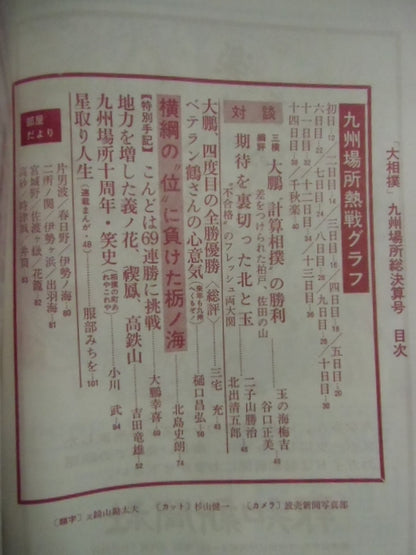 「大相撲」九州場所総決算号 目次
九州場所熱戦グラフ
初日-12/二日目-14/三日目-16/四日目-18/五日目-20
六日目-22/七日目-24/八日目-26/九日目-28/十日目-30
十一日目-32/十二日目-34/十三日目-36
十四日目-38/千秋楽-40
対談
三横綱評
大鵬“計算相撲”の勝利
差をつけられた柏戸、佐田の山
玉の海梅吉
谷口正美-43
期待を裏切った北と玉
“不合格”のフレッシュ両大関
二子山勝治
北出清五郎-46
大鵬、四度目の全勝優勝〈総評〉
三宅充-43
ベテラン鶴さんの心意気
樋口昌弘-50
横綱の“位”に負けた栃ノ海
北島史朗-74
【特別手記】こんどは69連勝に挑戦
大鵬幸喜-60
地力を増した義ノ花、禊鳳、高鉄山
吉田竜雄-52
九州場所十周年・笑史
小川武-94
星取り人生〈連載まんが・48〉
服部みちを-101
部屋だより
片男波/春日野/伊勢ノ海-80
二所ノ関/伊勢ヶ浜/出羽海-81
宮城野/佐渡ヶ嶽/花籠-82
高砂/時津風/井筒-83
〔カット〕杉山健一
〔カメラ〕読売新聞写真部